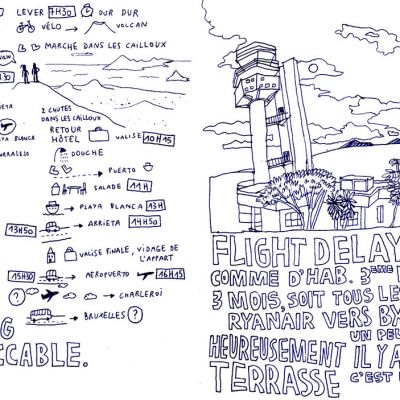 LEVER 7H30 DUR DUR
VÉLO VOLCAN
MARCHE DANS LES CAILLOUX
2 CHUTES
DANS LES CAILLOUX
RETOUR
HÔTEL VALISE 10H15
DOUCHE
PUERTO
SALADE 11H
PLAYA BLANCA 13H
13H50 ARRIETA 14H50
VALISE FINALE, VIDAGE DE
L'APPART
15H30 AEROPUERTO 16H15
? CHARLEROI
BRUXELLES ?
G
CCABLE.
FLIGHT DELAY
COMME D'HAB. 3EME
3 MOIS, SOIT TOUS LE
RYANAIR VERS BY
UN PEU
HEUREUSEMENT IL Y A
TERRASSE C'EST